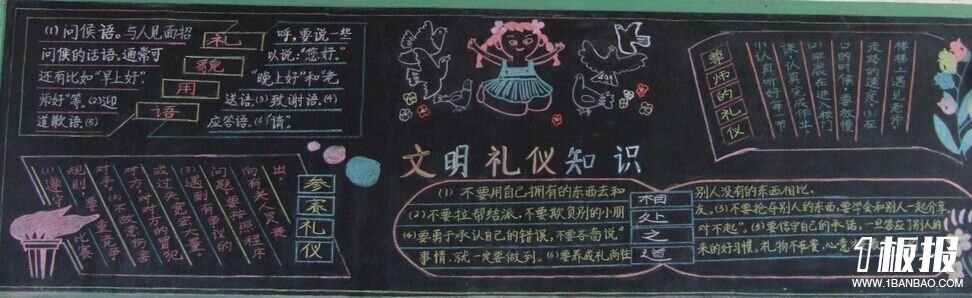 (1)问候语。与人见面招
呼,要说一些
问候的话语。通常可
以说:"您好。"
还有比如"早上好"
"晚上好"和"老
师好"等。(2)迎
送语。(3)致谢语。(4)
道歉语。(5)
应答语。(6)"请"。
礼
貌
用
语
尊师的礼仪
认真听好每一节
课,认真完成作业。
(2)早晨在进入校门
口的时候,要放慢
走路的速度。(3)在
楼梯时遇见老师
文明礼仪知识
参赛礼仪
(1)遵守比赛
规则,尊重竞争
对手。(2)不故意伤害
对方,对对方的冒犯
或过失宽宏大量。
(3)遇到有争议的
问题,要按照程序
向有关人员提
出。
相处之道
(1)不要用自己拥有的东西去和
别人没有的东西相比。
(2)不要拉帮结派,不要欺负别的小朋
友。(3)不要抢夺别人的东西,要学会和别人一起分享
(4)要勇于承认自己的错误,不要吝啬说"
对不起"。(5)要信守自己的承诺,一旦答应了别人的
事情,就一定要做到。(6)要养成礼尚往
来的好习惯。礼物不在贵,心意
1板报
WWW.1BANBAO.COM